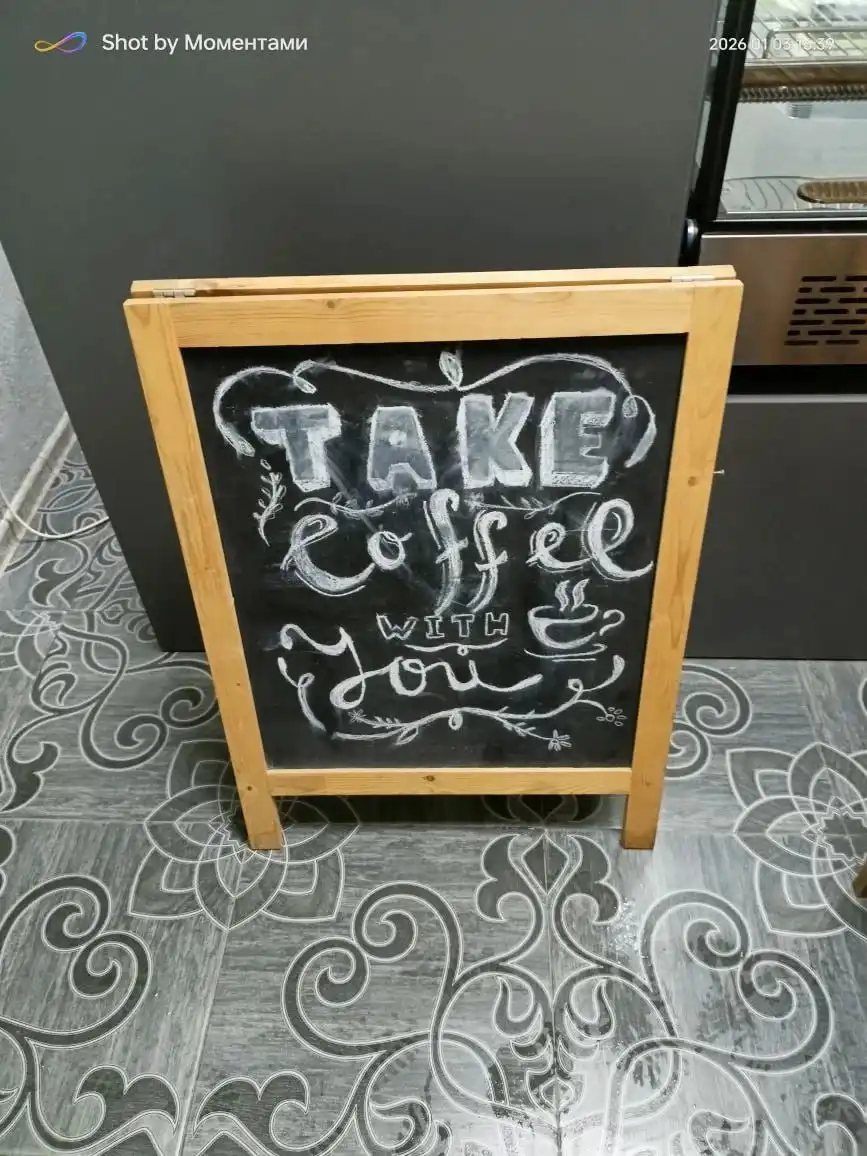 Shot by Моментами
2026 01 03 15:39
TAKE
Coffee
WITH
You